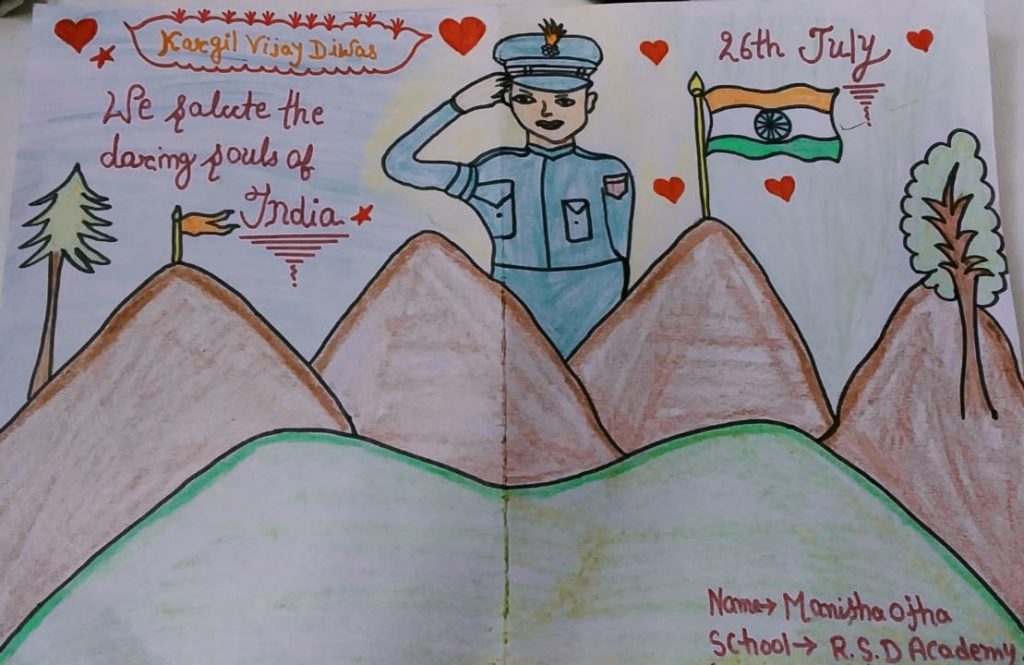 Kargil Vijay Diwas
We salute the
daring souls of
India
26th July
Name→ Manisha Ojha
School→ R.S.D Academy